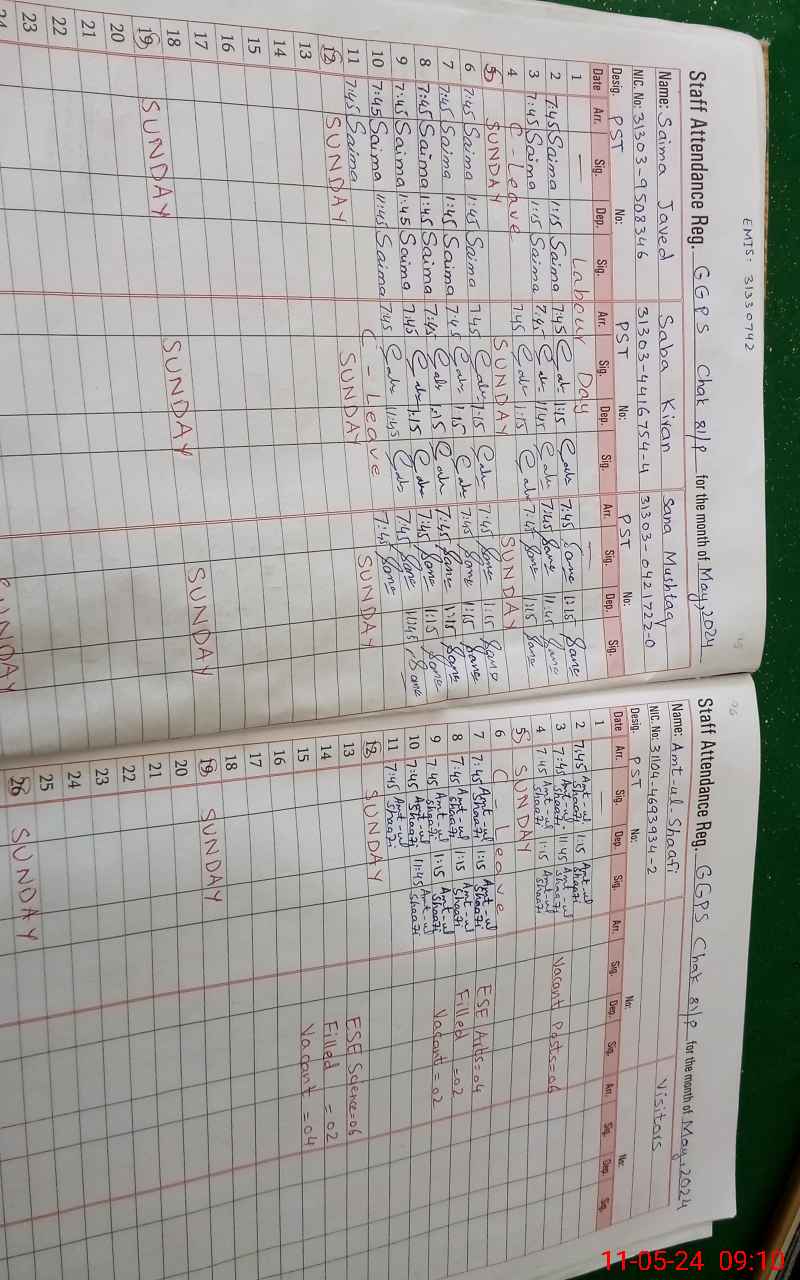 EMIS: 31330742
Staff Attendance Reg. GGPS Chak 81/P for the month of May, 2024
Name: Saima Javed Saba Kiran Sana Mushtaq
NIC. No: 31303-9508346 31303-4416754-4 31303-0421722-0
Desig. PST No: PST No: PST No:
Date Arr. Sig. Dep. Sig. Arr. Sig. Dep. Sig. Arr. Sig. Dep. Sig.
1 — Labour Day —
2 7:45 Saima 1:15 Saima 7:45 1:15 7:45 Sana 1:15 Sana
3 7:45 Saima 1:15 Saima 7:45 11:45 7:45 Sana 11:45 Sana
4 C-Leave 7:45 1:15 7:45 Sana 1:15 Sana
5 SUNDAY SUNDAY SUNDAY
6 7:45 Saima 1:45 Saima 7:45 1:15 7:45 Sana 1:15 Sana
7 7:45 Saima 1:45 Saima 7:45 1:15 7:45 Sana 1:15 Sana
8 7:45 Saima 1:45 Saima 7:45 1:15 7:45 Sana 1:15 Sana
9 7:45 Saima 1:45 Saima 7:45 1:15 7:45 Sana 1:15 Sana
10 7:45 Saima 11:45 Saima 7:45 11:45 7:45 Sana 11:45 Sana
11 7:45 Saima C-Leave 7:45 Sana
12 SUNDAY SUNDAY SUNDAY
13
14
15
16
17
18
19 SUNDAY SUNDAY SUNDAY
20
21
22
23
24
SUNDAY
96
Staff Attendance Reg. GGPS Chak 81/P for the month of May, 2024
Name: Amt-ul-Shaafi Visitors
NIC. No: 31104-4693934-2
Desig. PST No: No: No:
Date Arr. Sig. Dep. Sig. Arr. Sig. Dep. Sig. Arr. Sig. Dep. Sig.
1 —
2 7:45 Amt-ul Shaafi 1:15 Amt-ul Shaafi
3 7:45 Amt-ul Shaafi 11:45 Amt-ul Shaafi Vacant Posts=06
4 7:45 Amt-ul Shaafi 1:15 Amt-ul Shaafi
5 SUNDAY
6 C-Leave ESE Arts=04
7 7:45 Amt-ul Shaafi 1:15 Amt-ul Shaafi Filled =02
8 7:45 Amt-ul Shaafi 1:15 Amt-ul Shaafi Vacant = 02
9 7:45 Amt-ul Shaafi 1:15 Amt-ul Shaafi
10 7:45 Amt-ul Shaafi 11:45 Amt-ul Shaafi
11 7:45 Amt-ul Shaafi
12 SUNDAY
13 ESE Science=06
14 Filled = 02
15 Vacant = 04
16
17
18
19 SUNDAY
20
21
22
23
24
25
26 SUNDAY
11-05-24 09:10